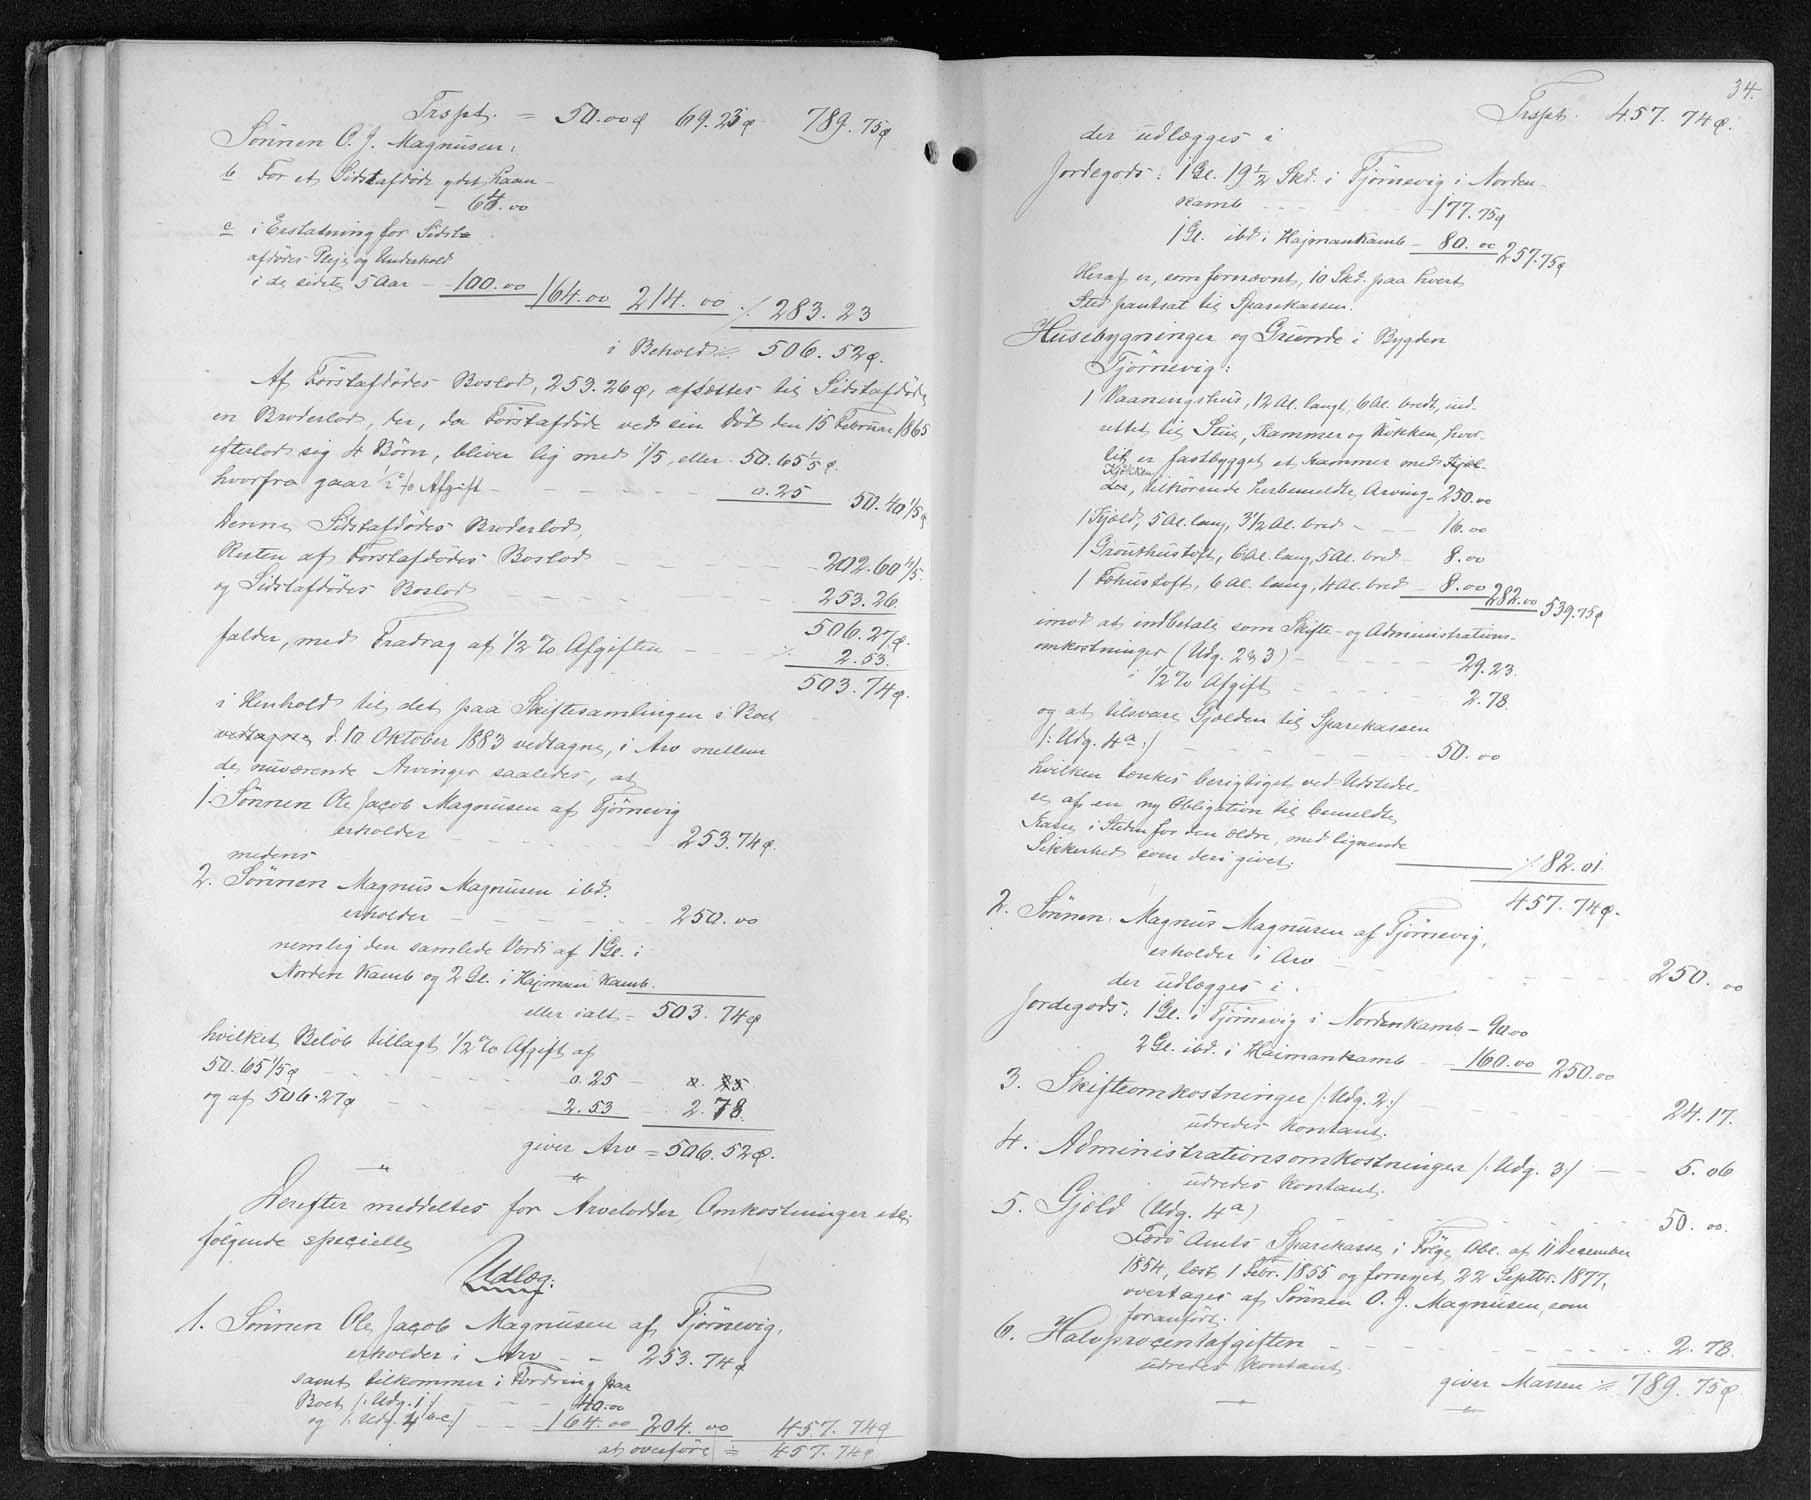 Trspt. = 50.00 ø 69.23 ø 789.75 ø
Sönnen O. J. Magnusen:
b For et Sidstafdöde ydet Laan –
– 64.00
c i Erstatning for Sidst=
afdödes Pleje og Underhold
i de sidste 5 Aar – 100.00 164.00 214.00 ./. 283.23
i Behold = 506.52 ø.
Af Förstafdödes Boslod, 253.26 ø, afsættes til Sidstafdöde
en Broderlod, der, da Förstafdöde ved sin Död den 15 Februar 1865
efterlod sig 4 Börn, bliver lig med 1/5, eller 50.65 1/5 ø.
hvorfra gaar 1/2 % Afgift – – – – – 0.25 50.40 1/5 ø
Denne Sidstafdödes Broderlod,
Resten af Förstafdödes Boslod – – – – – 202.60 4/5
og Sidstafdödes Boslod – – – – – 253.26
506.27 ø.
falder, med Fradrag af 1/2 % Afgiften – – – ./. 2.53.
503.74 ø.
i Henhold til det paa Skiftesamlingen i Boet
vedtagne d. 10 Oktober 1883 vedtagne, i Arv mellem
de nuværende Arvinger saaledes, at
1. Sönnen Ole Jacob Magnusen af Tjörnevig
erholder – – – – – 253.74 ø.
medens
2. Sönnen Magnus Magnusen ibd.
erholder – – – – – 250.00
nemlig den samlede Værdi af 1 Gl. i
Norden Kamb og 2 Gl. i Hajman Kamb.
eller ialt – 503.74 ø
hvilket Belöb tillagt 1/2 % Afgift af
50.65 1/5 ø – – – – – 0.25 – 0.25
og af 506.27 ø – – – 2.53 2.78.
giver Arv = 506.52 ø.
– " – – " –
Derefter meddeltes for Arvelodder, Omkostninger etc.
fölgende specielle
Udlæg:
1. Sönnen Ole Jacob Magnusen af Tjörnevig,
erholder i Arv – – 253.74 ø
samt tilkommer i Fordring paa
Boet /: Udg. 1 :/ – – – 40.00
og /: Udg. 4 b-c :/ – – 164.00 204.00 457.74 ø
at overföre = 457.74 ø
34.
Trspt. 457.74 ø.
der udlægges i
Jordegods: 1 Gl. 19 1/2 Skd. i Tjörnevig i Norden-
kamb – – – – – 177.75 ø
1 Gl. ibd. i Hajmankamb – 80.00 257.75 ø
Heraf er, som fornævnt, 10 Skd. paa hvert
Sted pantsat til Sparekassen.
Husebygninger og Grunde i Bygden
Tjörnevig:
1 Vaaningshus, 12 Al. langt, 6 Al. bredt, ind-
rettet til Stue, Kammer og Kökken, hver-
til er fastbygget et Kammer med Kjæl-
Kjökken
der, tilhörende herbemeldte Arving – 250.00
1 Hjald, 5 Al. lang, 3 1/2 Al. bred – – 16.00
1 Grouthustoft, 6 Al. lang, 5 Al. bred – 8.00
1 Fæhustoft, 6 Al. lang, 4 Al. bred – 8.00 282.00 539.75 ø
imod at indbetale som Skifte- og Administrations-
omkostninger (Udg. 2 & 3) – – – – – 29.23.
i 1/2 % Afgift – – – – – 2.78.
og at tilsvare Gjælden til Sparekassen
/: Udg. 4 a :/ – – – – – 50.00
hvilken tænkes berigtiget ved Udstedel-
se af en ny Obligation til bemeldte
Kasse i Steden for den ældre, med lignende
Sikkerhed som deri givet. ./. 82.01.
457.74 ø.
2. Sönnen: Magnus Magnusen af Tjörnevig,
erholder i Arv – – – – – 250.00
der udlægges i.
Jordegods: 1 Gl. i Tjörnevig i Nordenkamb – 90.00
2 Gl. ibd. i Haimankamb – 160.00 250.00
3. Skifteomkostninger /: Udg. 2 :/ – – – – – 24.17.
udredes kontant.
4. Administrationsomkostninger /: Udg. 3 :/ – – 5.06
udredes kontant.
5. Gjæld (Udg. 4 a) – – – – – 50.00.
Færö Amts Sparekasse i Fölge Obl. af 11 December
1854, læst 1 Febr. 1855 og fornyet 22 Septbr. 1877,
overtages af Sönnen O. J. Magnusen, som
foranfört.
6. Halvprocentafgiften – – – – – 2.78.
udredes kontant.
giver Massen = 789.75 ø.
– " –